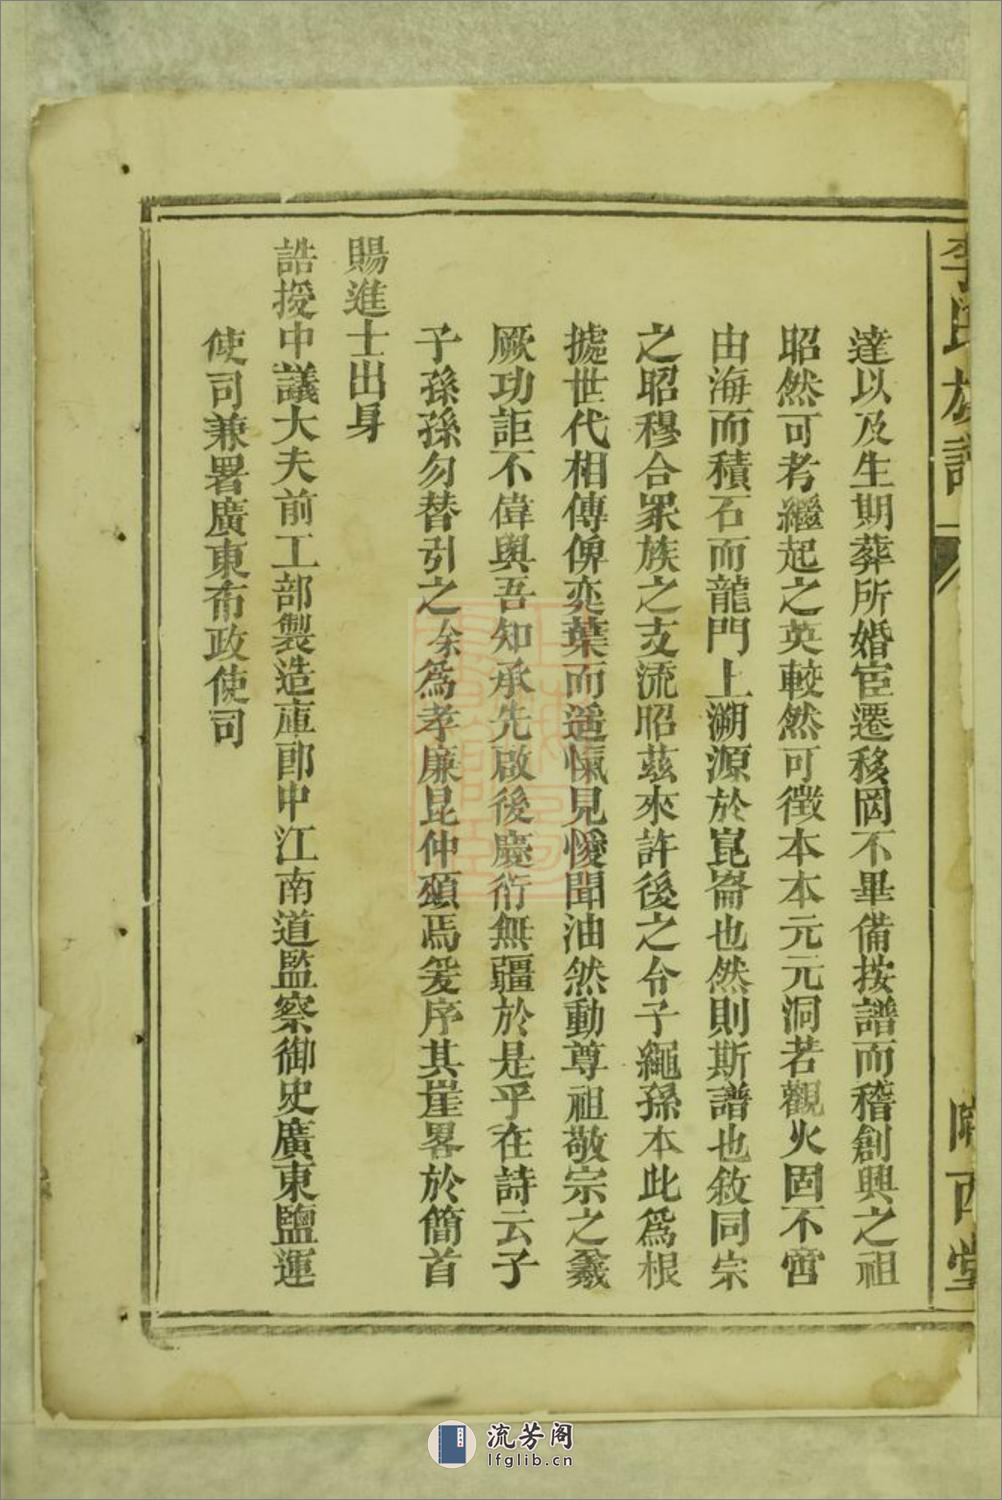 李氏族譜
隴西堂
達以及生期葬所婚宦遷移罔不畢備按譜而稽創興之祖
昭然可考繼起之英較然可徵本本元元洞若觀火固不啻
由海而積石而龍門上溯源於崑崙也然則斯譜也敘同宗
之昭穆合眾族之支流昭茲來許後之令子繩孫本此為根
據世代相傳俾奕葉而遥愾見慢聞油然動尊祖敬宗之義
厥功詎不偉與吾知承先啟後慶衍無疆於是乎在詩云子
子孫孫勿替引之余為孝廉昆仲頌焉爰序其崖畧於簡首
賜進士出身
誥授中議大夫前工部製造庫郎中江南道監察御史廣東鹽運
使司兼署廣東布政使司
流芳阁
lfglib.cn